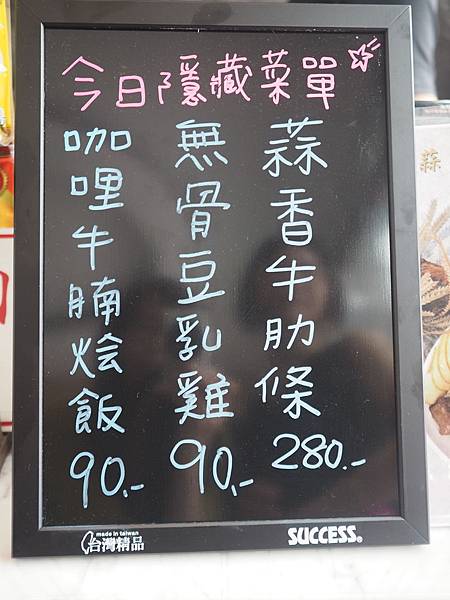 今日隱藏菜單
蒜香牛肋條 280.-
無骨豆乳雞 90.-
咖哩牛腩燴飯 90.-
made in taiwan
台灣精品
SUCCESS®
蒜